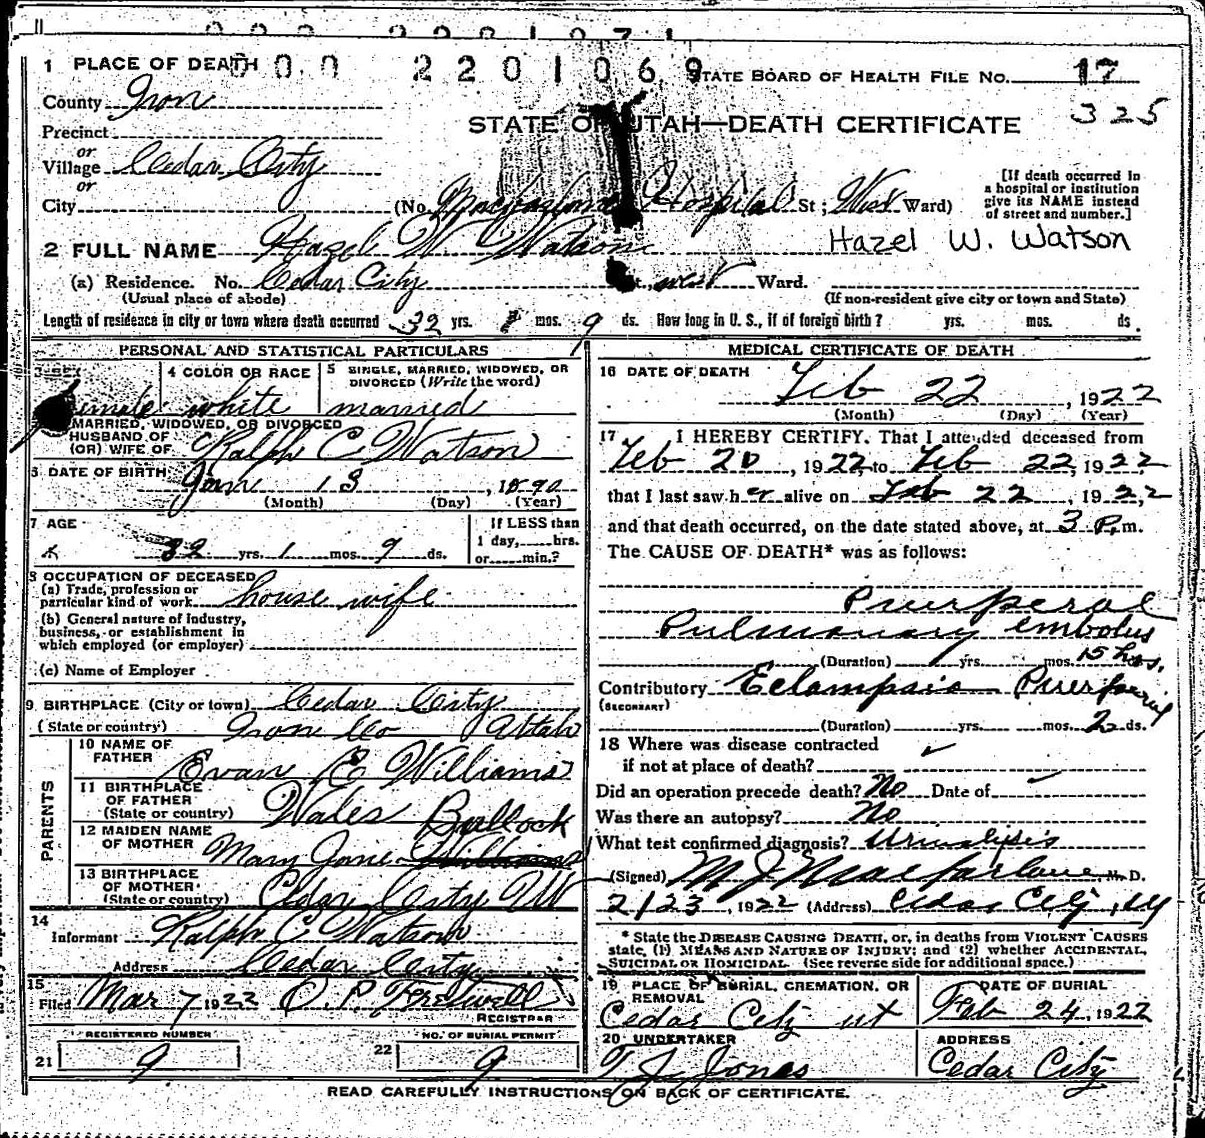 0 0 0 2 2 0 1 0 6 9
1 PLACE OF DEATH
STATE BOARD OF HEALTH FILE NO. 17
County Iron
325
STATE OF UTAH—DEATH CERTIFICATE
Precinct
or
Village Cedar City
or
City
(No. Macfarlane Hospital St; West Ward)
[If death occurred in
a hospital or institution
give its NAME instead
of street and number.]
2 FULL NAME Hazel W. Watson
Hazel W. Watson
(a) Residence. No. Cedar City St., west Ward.
(Usual place of abode)
(If non-resident give city or town and State)
Length of residence in city or town where death occurred 32 yrs. 1 mos. 9 ds. How long in U. S., if of foreign birth? yrs. mos. ds.
PERSONAL AND STATISTICAL PARTICULARS
3 SEX
female
4 COLOR OR RACE
white
5 SINGLE, MARRIED, WIDOWED, OR
DIVORCED (Write the word)
married
MARRIED, WIDOWED, OR DIVORCED
HUSBAND OF
(OR) WIFE OF Ralph C Watson
6 DATE OF BIRTH Jan 13, 1890
(Month) (Day) (Year)
7 AGE
32 yrs. 1 mos. 9 ds.
If LESS than
1 day, hrs.
or min.?
8 OCCUPATION OF DECEASED
(a) Trade, profession or
particular kind of work house wife
(b) General nature of Industry,
business, or establishment in
which employed (or employer)
(c) Name of Employer
9 BIRTHPLACE (City or town) Cedar City
(State or country) Iron Co Utah
PARENTS
10 NAME OF
FATHER Evan E Williams
11 BIRTHPLACE
OF FATHER
(State or country) Wales
12 MAIDEN NAME
OF MOTHER Mary Jane Williams Bullock
13 BIRTHPLACE
OF MOTHER
(State or country) Cedar City
14
Informant Ralph C Watson
Address Cedar City
15
Filed Mar 7 1922 O. P. Fretwell
REGISTRAR
REGISTERED NUMBER
21 9
NO. OF BURIAL PERMIT
22 9
MEDICAL CERTIFICATE OF DEATH
16 DATE OF DEATH
Feb 22, 1922
(Month) (Day) (Year)
17 I HEREBY CERTIFY, That I attended deceased from
Feb 20, 1922 to Feb 22, 1922
that I last saw her alive on Feb 22, 1922
and that death occurred, on the date stated above, at 3 P. m.
The CAUSE OF DEATH* was as follows:
Puerperal
Pulmonary embolus
(Duration) yrs. mos. 15 hrs.
Contributory Eclampsia Puerperal
(SECONDARY)
(Duration) yrs. mos. 2 ds.
18 Where was disease contracted
if not at place of death?
Did an operation precede death? No Date of
Was there an autopsy? No
What test confirmed diagnosis? Urinalysis
(Signed) M J Macfarlane, M. D.
2/23, 1922 (Address) Cedar City, Ut
* State the DISEASE CAUSING DEATH, or, in deaths from VIOLENT CAUSES
state, (1) MEANS AND NATURE OF INJURY; and (2) whether ACCIDENTAL,
SUICIDAL OR HOMICIDAL. (See reverse side for additional space.)
19 PLACE OF BURIAL, CREMATION, OR
REMOVAL
Cedar City ut
DATE OF BURIAL
Feb 24, 1922
20 UNDERTAKER
T J Jones
ADDRESS
Cedar City
READ CAREFULLY INSTRUCTIONS ON BACK OF CERTIFICATE.